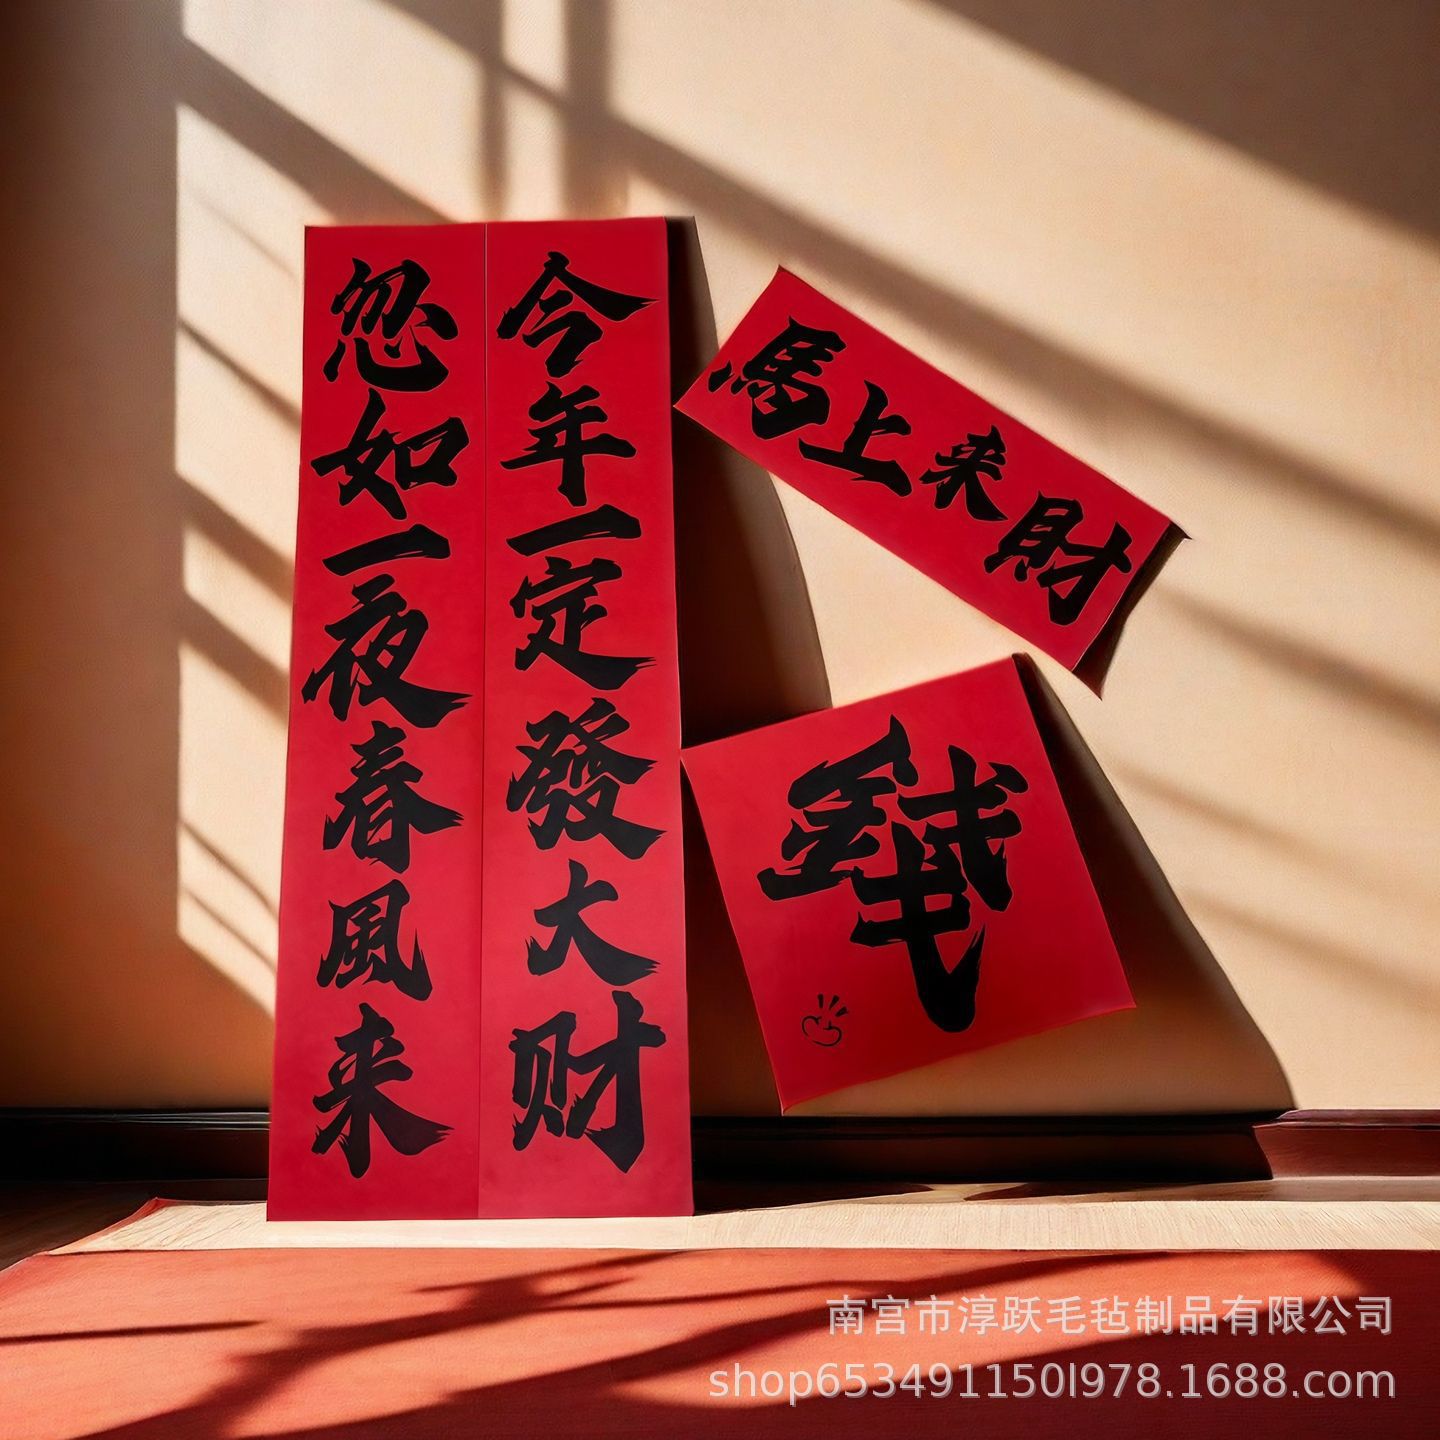 忽如一夜春風来
今年一定發大财
馬上来財
南宫市淳跃毛毡制品有限公司
shop653491150l978.1688.com